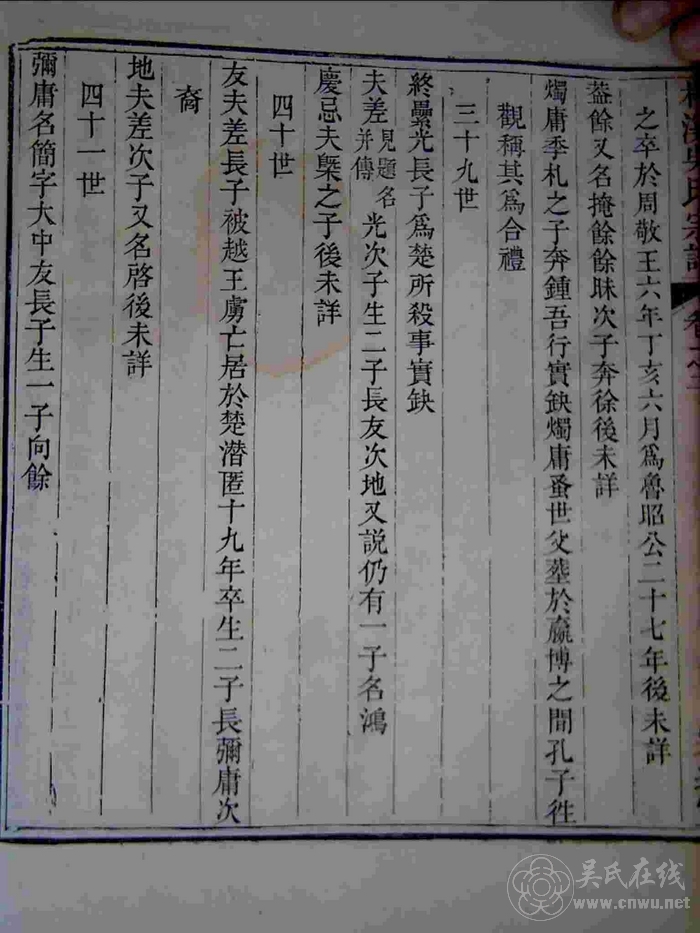 吳氏宗譜
之卒於周敬王六年丁亥六月爲魯昭公二十七年後未詳
葢餘又名掩餘餘眛次子奔徐後未詳
燭庸季札之子奔鍾吾行實缺燭庸蚤世父塟於嬴博之間孔子徃
觀稱其爲合禮
三十九世
終纍光長子爲楚所殺事實缺
夫差見題名并傳光次子生二子長友次地又説仍有一子名鴻
慶忌夫槩之子後未詳
四十世
友夫差長子被越王虜亡居於楚潛匿十九年卒生二子長彌庸次
裔
地夫差次子又名啓後未詳
四十一世
彌庸名簡字大中友長子生一子向餘
吴氏在线
www.cnwu.net